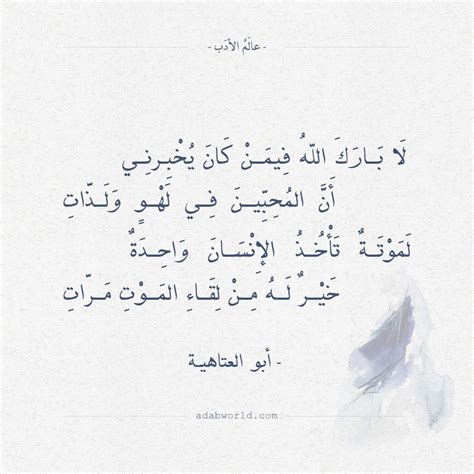 - عالَمُ الأدَب -
لَا بَـارَكَ اللّٰهُ فِيمَـنْ كَانَ يُخْبِـرنِـي
أَنَّ المُحِبِّيـنَ فِـي لَهْوٍ وَلَـذّاتِ
لَمَوْتَـةٌ تَأْخُـذُ الإِنْسَـانَ وَاحِـدَةٌ
خَيْـرٌ لَـهُ مِـنْ لِقَـاءِ المَـوْتِ مَـرّاتِ
- أبو العتاهية
adabworld.com